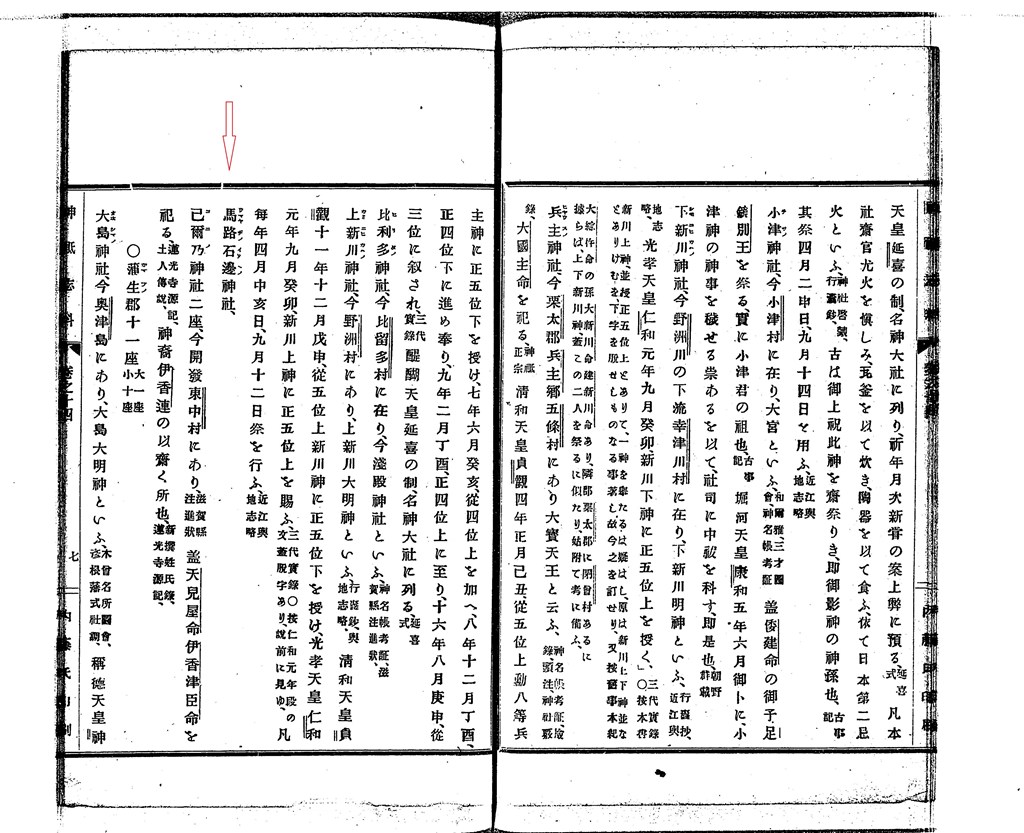 天皇延喜の制名神大社に列り、祈年月次新甞の案上幣に預る、延喜式 凡本
社齋官尤火を愼しみ、瓦釜を以て炊き、陶器を以て食ふ、依て日本第二忌
火といふ、神社啓蒙、行嚢鈔、 古は御上祝此神を齋祭りき、即御影神の神孫也、古事記
其祭四月二申日、九月十四日を用ふ、近江輿地志略
小津神社、今小津村に在り、大宮といふ、和爾雅、三才圖會、神名帳考証 蓋倭建命の御子足
鏡別王を祭る、實に小津君の祖也、古事記 堀河天皇康和五年六月御卜に、小
津神の神事を穢せる祟あるを以て、社司に中祓を科す、即是也、朝野群載
下新川神社、今野洲川の下流幸津川村に在り、下新川明神といふ、行嚢抄、近江輿
地志略、 光孝天皇仁和元年九月癸卯、新川下神に正五位上を授く、三代實錄〇按本書
新川上神並授正五位上とありて、一神を擧たるは疑はし、原は新川上下神並な
どありけむを、下字を脱せしものなる事著し、故今之を訂せり、又按舊事本紀
大綜杵命の孫大新川命、建新川命あり、隣郡栗太郡に閇曾村あるに
據らば、上下新川神、蓋この二人を祭るに似たり、姑附て考に備ふ、
兵主神社、今栗太郡兵主鄕五條村にあり、大寳天王と云ふ、神名帳考証、淡
錄、 大國主命を祀る、神祇正宗 清和天皇貞觀四年正月己丑、從五位上勳八等兵
主神に正五位下を授け、七年六月癸亥、從四位上を加へ、八年十二月丁酉、
正四位下に進め奉り、九年二月丁酉、正四位上に至り、十六年八月庚申、從
三位に叙され、三代實錄 醍醐天皇延喜の制、名神大社に列る、延喜式
比利多神社、今比留多村に在り、今淺殿神社といふ、神名帳考証、滋賀縣注進狀、
上新川神社、今野洲村にあり、上新川大明神といふ、行嚢鈔、輿地志略、 清和天皇貞
觀十一年十二月戊申、從五位上新川神に正五位下を授け、光孝天皇仁和
元年九月癸卯、新川上神に正五位上を賜ふ、三代實錄〇按仁和元年段の文蓋脱字あり、説前に見ゆ、 凡
每年四月中亥日、九月十二日祭を行ふ、近江輿地志略
馬路石邊神社、
已爾乃神社二座、今開發東中村にあり、滋賀縣注進狀 蓋天兒屋命伊香津臣命を
祀る、蓮光寺源記、土人傳說、 神裔伊香連の以齋く所也、新撰姓氏錄、蓮光寺源記、
〇蒲生郡十一座 大一座 小十座
大島神社、今奥津島にあり、大島大明神といふ、木曾名所圖會、彦根藩式社調、 稱德天皇神
神祇志料
卷之十四
七